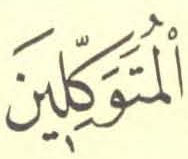 الْمُتَوَكِّلِينَ